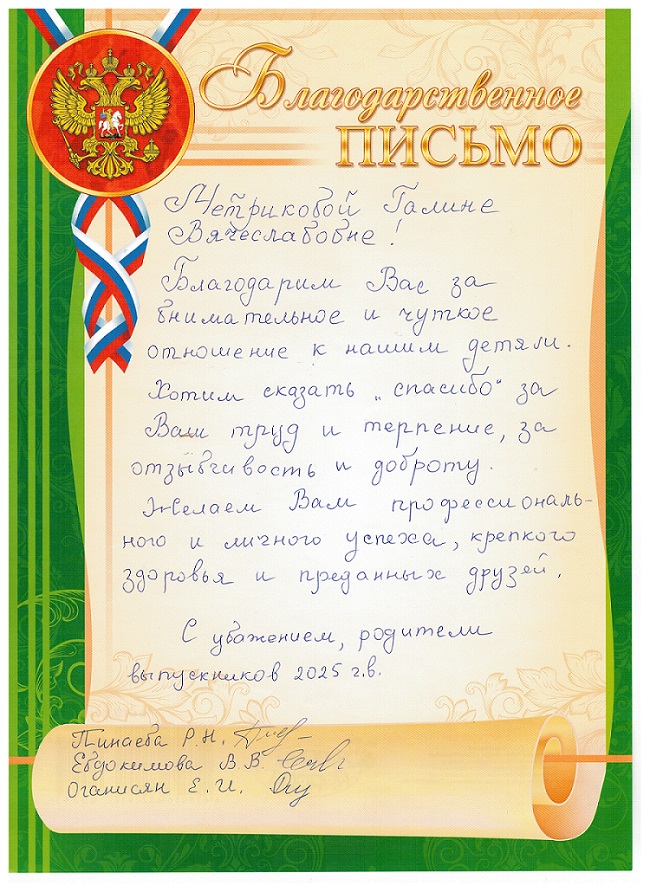 Благодарственное
ПИСЬМО
Метриковой Галине
Вячеславовне!
Благодарим Вас за
внимательное и чуткое
отношение к нашим детям.
Хотим сказать „спасибо“ за
Ваш труд и терпение, за
отзывчивость и доброту.
Желаем Вам профессиональ-
ного и личного успеха, крепкого
здоровья и преданных друзей.
С уважением, родители
выпускников 2025 г.в.
Пинаева Р.Н.
Евдокимова В.В.
Оганисян Е.И.